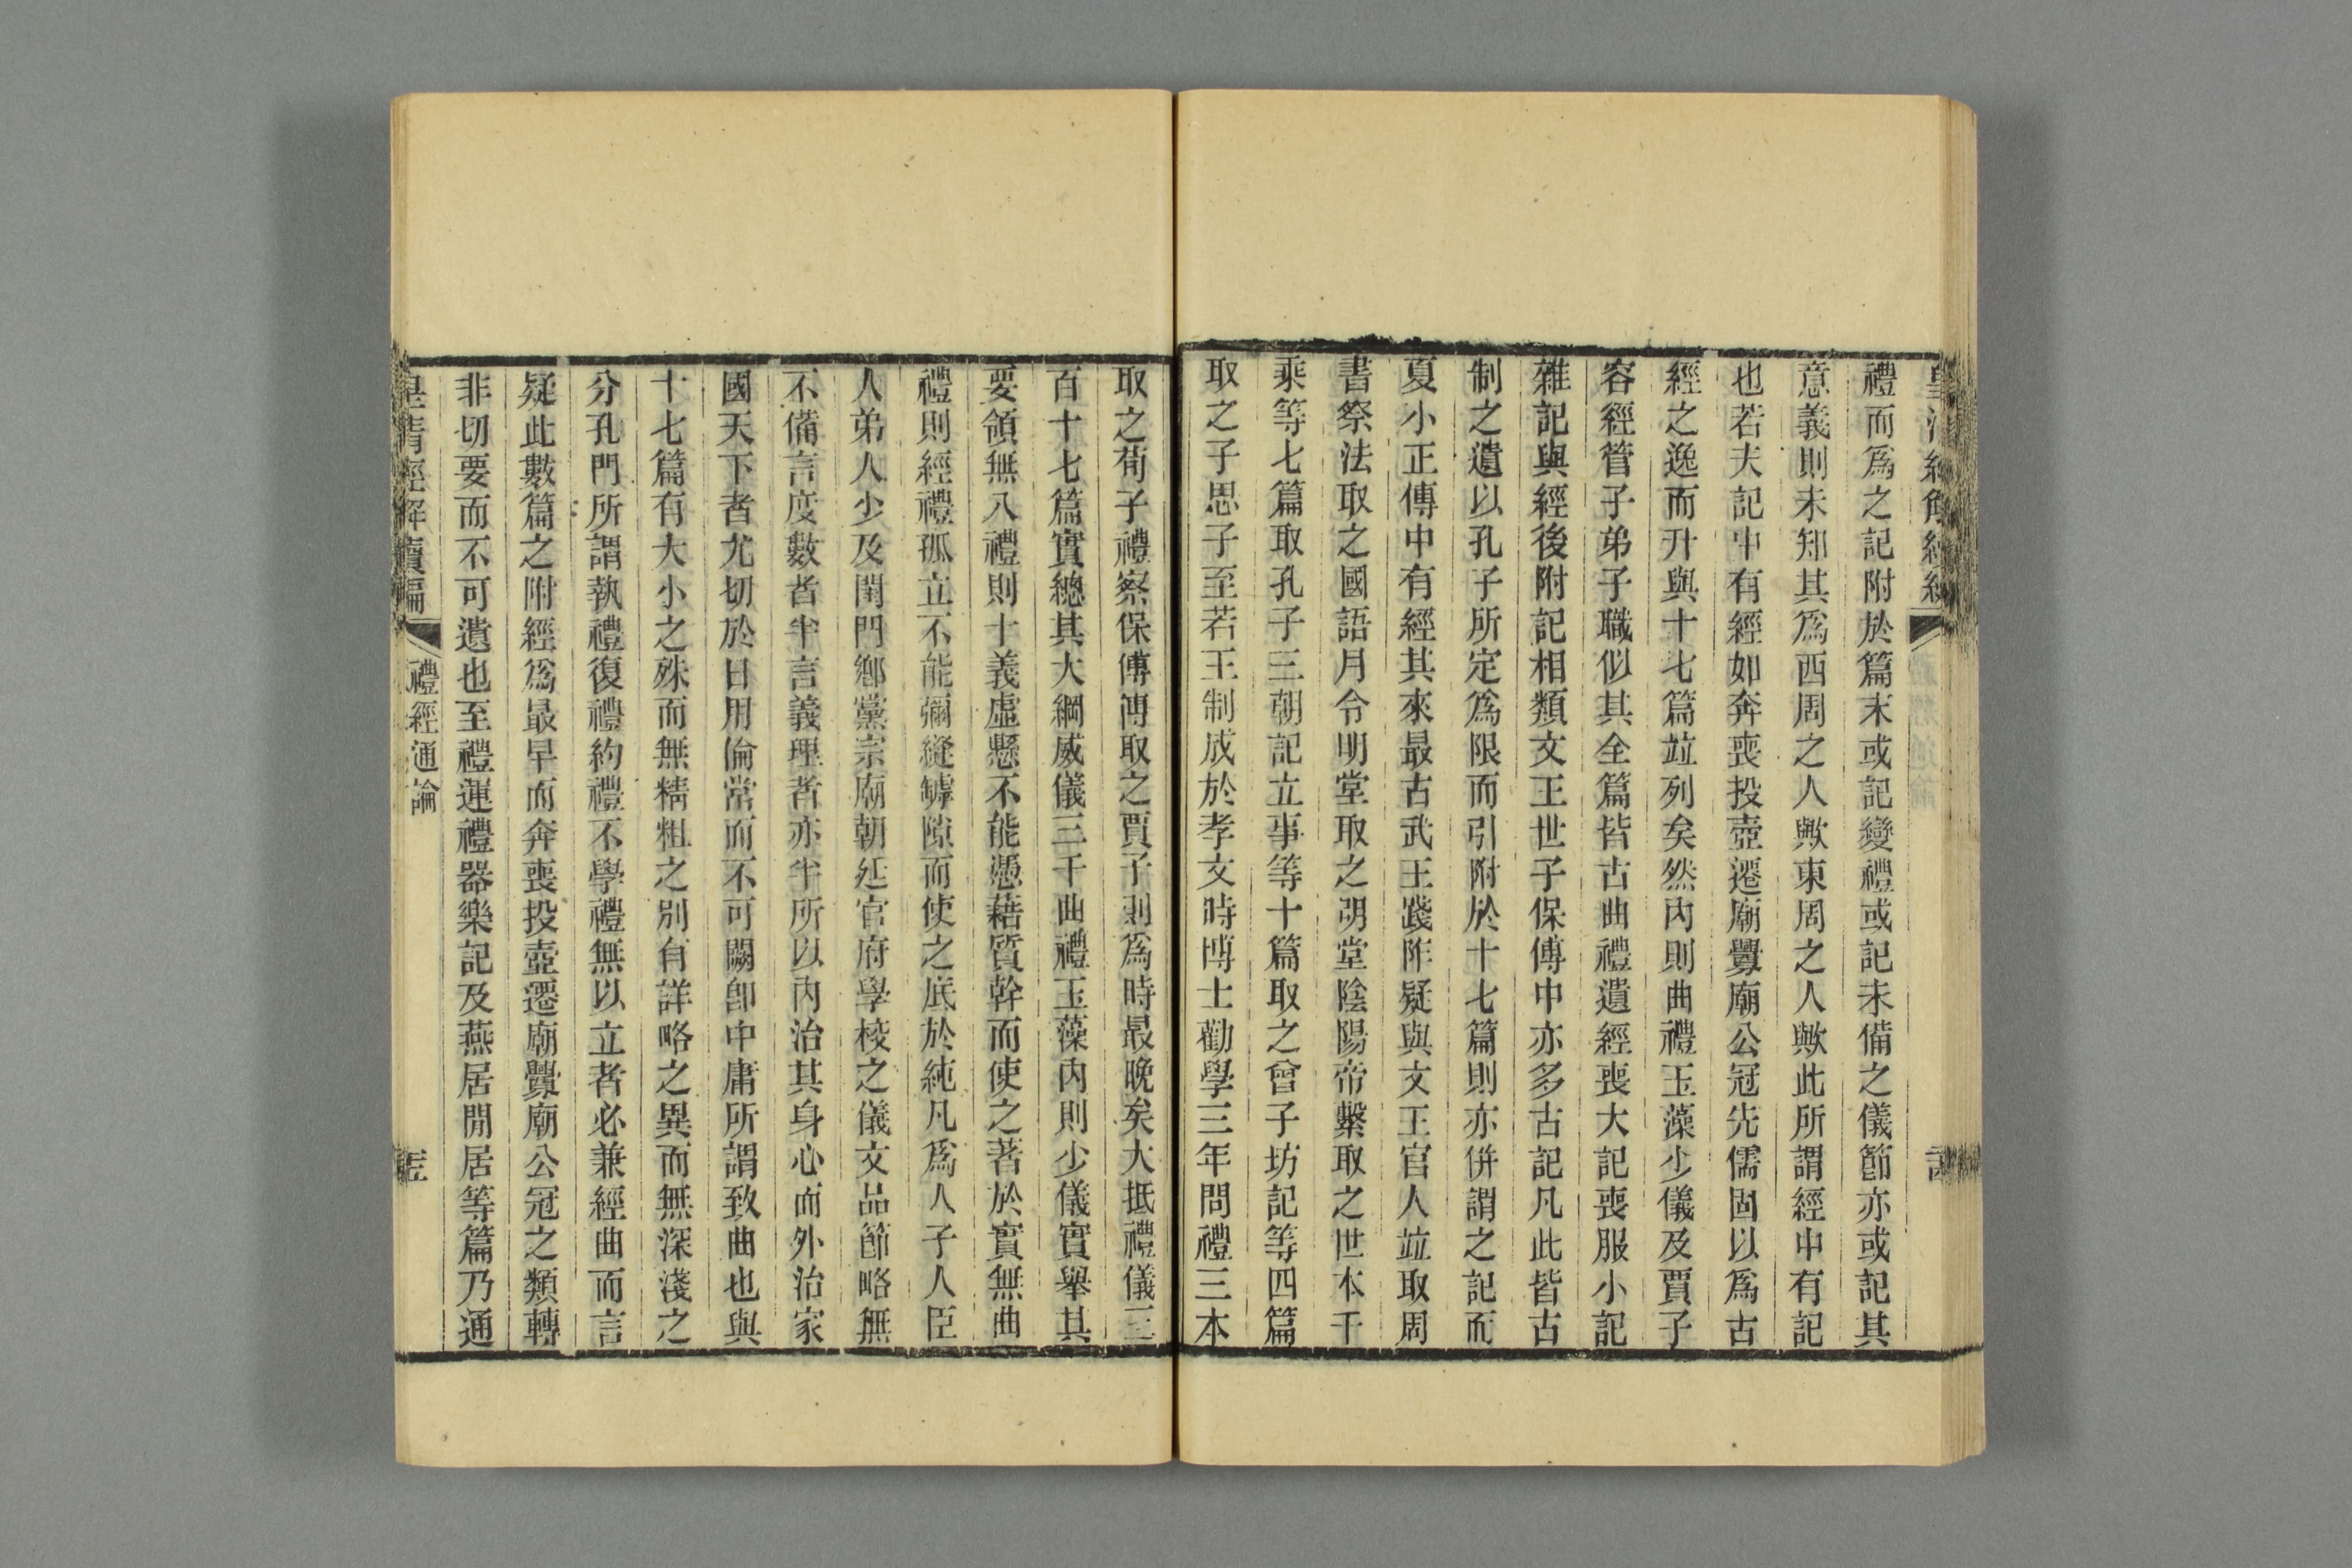 禮而爲之記附於篇末或記變禮或記未備之儀節亦或記其
意義則未知其爲西周之人歟東周之人歟此所謂經中有記
也若夫記中有經如奔喪投壺遷廟釁廟公冠先儒固以爲古
經之逸而升與十七篇竝列矣然內則曲禮玉藻少儀及賈子
容經管子弟子職似其全篇皆古曲禮遺經喪大記喪服小記
雜記與經後附記相類文王世子保傅中亦多古記凡此皆古
制之遺以孔子所定爲限而引附於十七篇則亦併謂之記而
夏小正傳中有經其來最古武王踐阼疑與文王官人竝取周
書祭法取之國語月令明堂取之明堂陰陽帝繫取之世本千
乘等七篇取孔子三朝記立事等十篇取之曾子坊記等四篇
取之子思子至若王制成於孝文時博士勸學三年問禮三本
取之荀子禮察保傅傅取之賈子則爲時最晚矣大抵禮儀三
百十七篇實總其大綱威儀三千曲禮玉藻內則少儀實舉其
要領無八禮則十義虛懸不能憑藉質幹而使之著於實無曲
禮則經禮孤立不能彌縫罅隙而使之底於純凡爲人子人臣
人弟人少及閨門鄉黨宗廟朝廷官府學校之儀文品節略無
不備言度數者半言義理者亦半所以內治其身心而外治家
國天下者尤切於日用倫常而不可闕卽中庸所謂致曲也與
十七篇有大小之殊而無精粗之別有詳略之異而無深淺之
分孔門所謂執禮復禮約禮不學禮無以立者必兼經曲而言
疑此數篇之附經爲最早而奔喪投壺遷廟釁廟公冠之類轉
非切要而不可遺也至禮運禮器樂記及燕居閒居等篇乃通
皇清經解續編
禮經通論